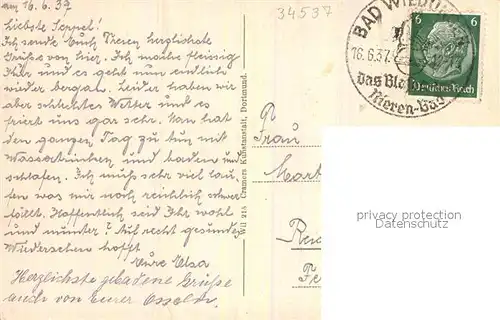 am 16. 6. 37
Liebste Seppel!
Ich sende Euch Theien herzlichste
Grüsse von hier. Ich mache fleissig
Kur und es geht nun endlich
wieder bergab. Leider haben wir
aber schlechtes Wetter und es
friert uns gar sehr. Man hat
den ganzen Tag zu tun mit
Wassertrinken und baden und
schlafen. Ich muss sehr viel lau-
fen was mir noch reichlich schwer
fällt. Hoffentlich seid Ihr wohl
und munter? Auf recht gesundes
Wiedersehen hofft
Eure Elsa
Herzlichste gebadene Grüsse
auch von Eurer
34537
BAD WILDUNGEN
16.6.37.
das
Nieren-Bad
6 6
Deutsches Reich
Wil 218 Cramers Kunstanstalt, Dortmund.
Frau
privacy protection
Datenschutz